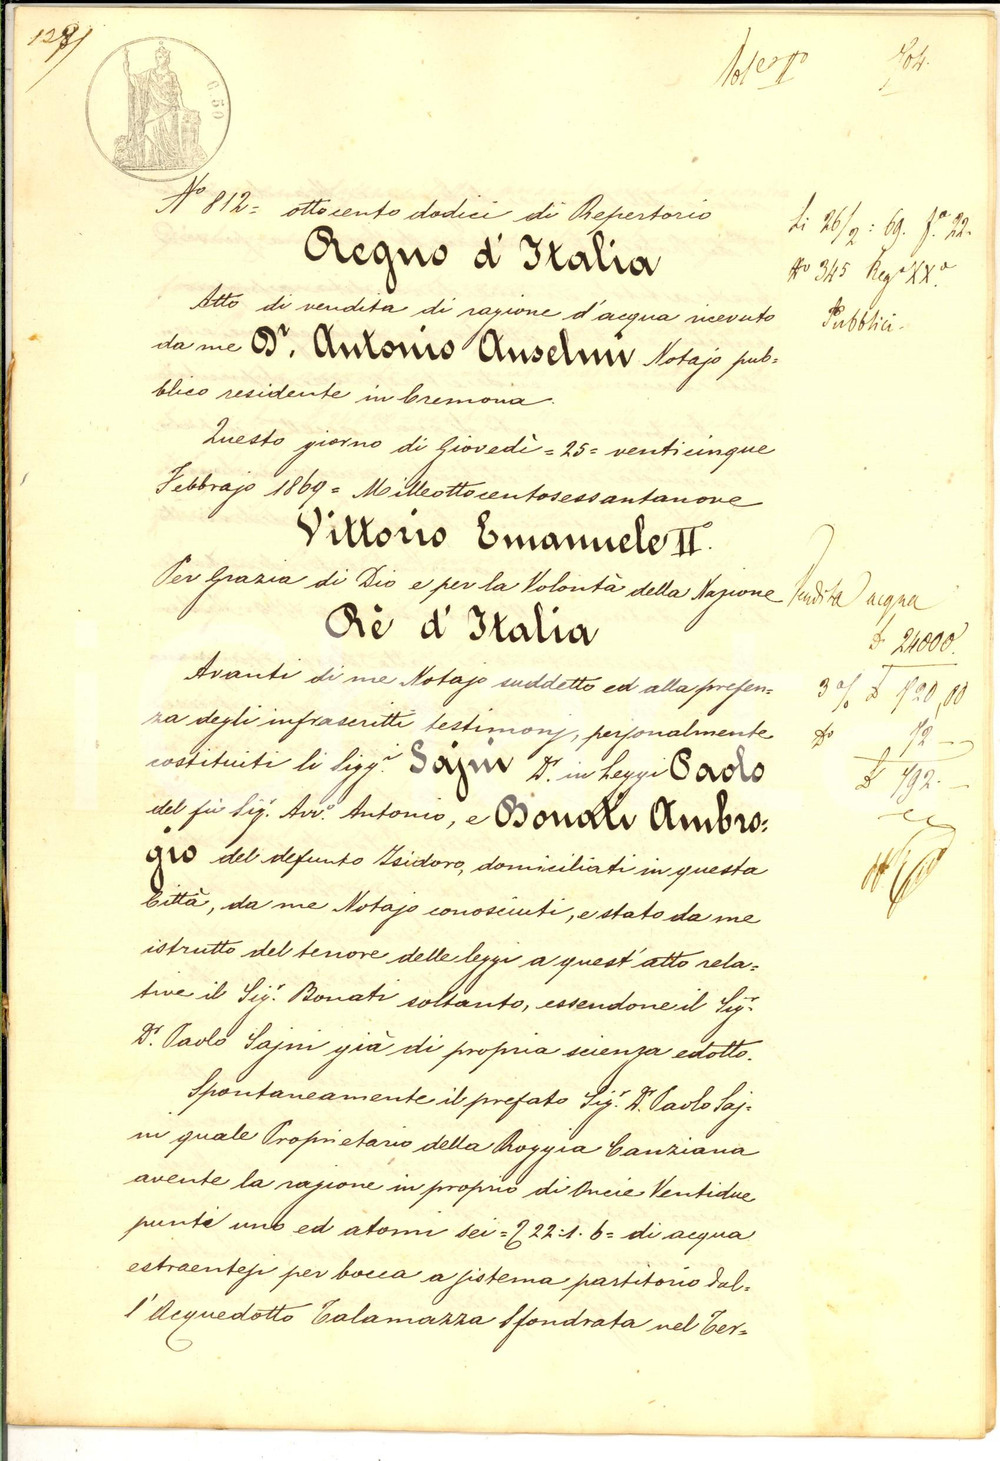 0.50
704.
N.o 812= ottocento dodici di Repertorio
Regno d'Italia
Li 26/2: 69. f.o 22.
N.o 345 Reg.o XX.o
Pubblici.
Atto di vendita di ragione d'acqua ricevuto
da me D.r Antonio Anselmi Notajo pub=
blico residente in Cremona.
Questo giorno di Giovedì = 25 = venticinque
Febbrajo 1869 = Milleottocentosessantanove
Vittorio Emanuele II.o
Per Grazia di Dio e per la Volontà della Nazione
Rè d'Italia
Vendita acqua
£ 24000.
3 % £ 720,00
72 —
£ 792. —
Avanti di me Notajo suddetto ed alla presen=
za degli infrascritti testimonj, personalmente
costituiti li Sigg.i Sajni D.r in Leggi Paolo
del fù Sig.r Avv.o Antonio, e Bonati Ambro=
gio del defunto Isidoro, domiciliati in questa
Città, da me Notajo conosciuti, e stato da me
istrutto del tenore delle leggi a quest'atto rela=
tive il Sig.r Bonati soltanto, essendone il Sig.r
D.r Paolo Sajni già di propria scienza edotto.
Spontaneamente il prefato Sig.r D.r Paolo Saj=
ni quale Proprietario della Roggia Canziana
avente la ragione in proprio di Oncie Ventidue
punti uno ed atomi sei = 22. 1. 6 = di acqua
estraentesi per bocca a sistema partitorio dal=
l'Acquedotto Talamazza Sfondrata nel Ter=